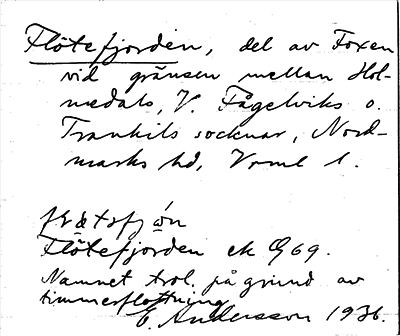 Flötefjorden, del av Foxen
vid gränsen mellan Hol-
medals, V. Fågelviks o.
Trankils socknar, Nord-
marks hd, Vrml l.
Flötefjorden ek G 69.
Namnet trol. på grund av
timmerflottning
E. Andersson 1936.